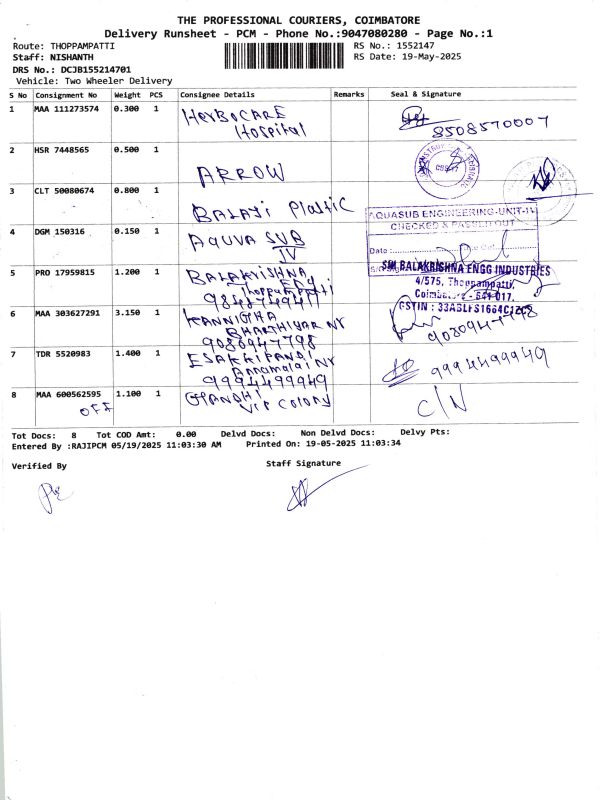 THE PROFESSIONAL COURIERS, COIMBATORE
Delivery Runsheet - PCM - Phone No.:9047080280 - Page No.:1
Route: THOPPAMPATTI
RS No.: 1552147
Staff: NISHANTH
RS Date: 19-May-2025
DRS No.: DCJB155214701
Vehicle: Two Wheeler Delivery
S No Consignment No Weight PCS Consignee Details Remarks Seal & Signature
1 MAA 111273574 0.300 1 HerboCARE
Hospital
8508570007
2 HSR 7448565 0.500 1 ARROW
3 CLT 50080674 0.800 1 BALAJI Plastic
AQUASUB ENGINEERING-UNIT-IV
CHECKED & PASSED OUT
Date
4 DGM 150316 0.150 1 AQUVA SUB
IV
5 PRO 17959815 1.200 1 BALAKRISHNA
Engg
Thoppampatti
SRI BALAKRISHNA ENGG INDUSTRIES
4/575, Thoppampatti,
Coimbatore - 641 017.
GSTIN : 33ABLFS1664C1ZC
6 MAA 303627291 3.150 1 KANNIGHA
BHARTHIYAR NR
9080947798
9080947798
7 TDR 5520983 1.400 1 ESAKKIPANDI
Annamalai NR
9994499949
9994499949
8 MAA 600562595 1.100 1 GHANDHI
OFF
VIP COLONY
C/N
Tot Docs: 8 Tot COD Amt: 0.00 Delvd Docs: Non Delvd Docs: Delvy Pts:
Entered By :RAJIPCM 05/19/2025 11:03:30 AM Printed On: 19-05-2025 11:03:34
Verified By
Staff Signature